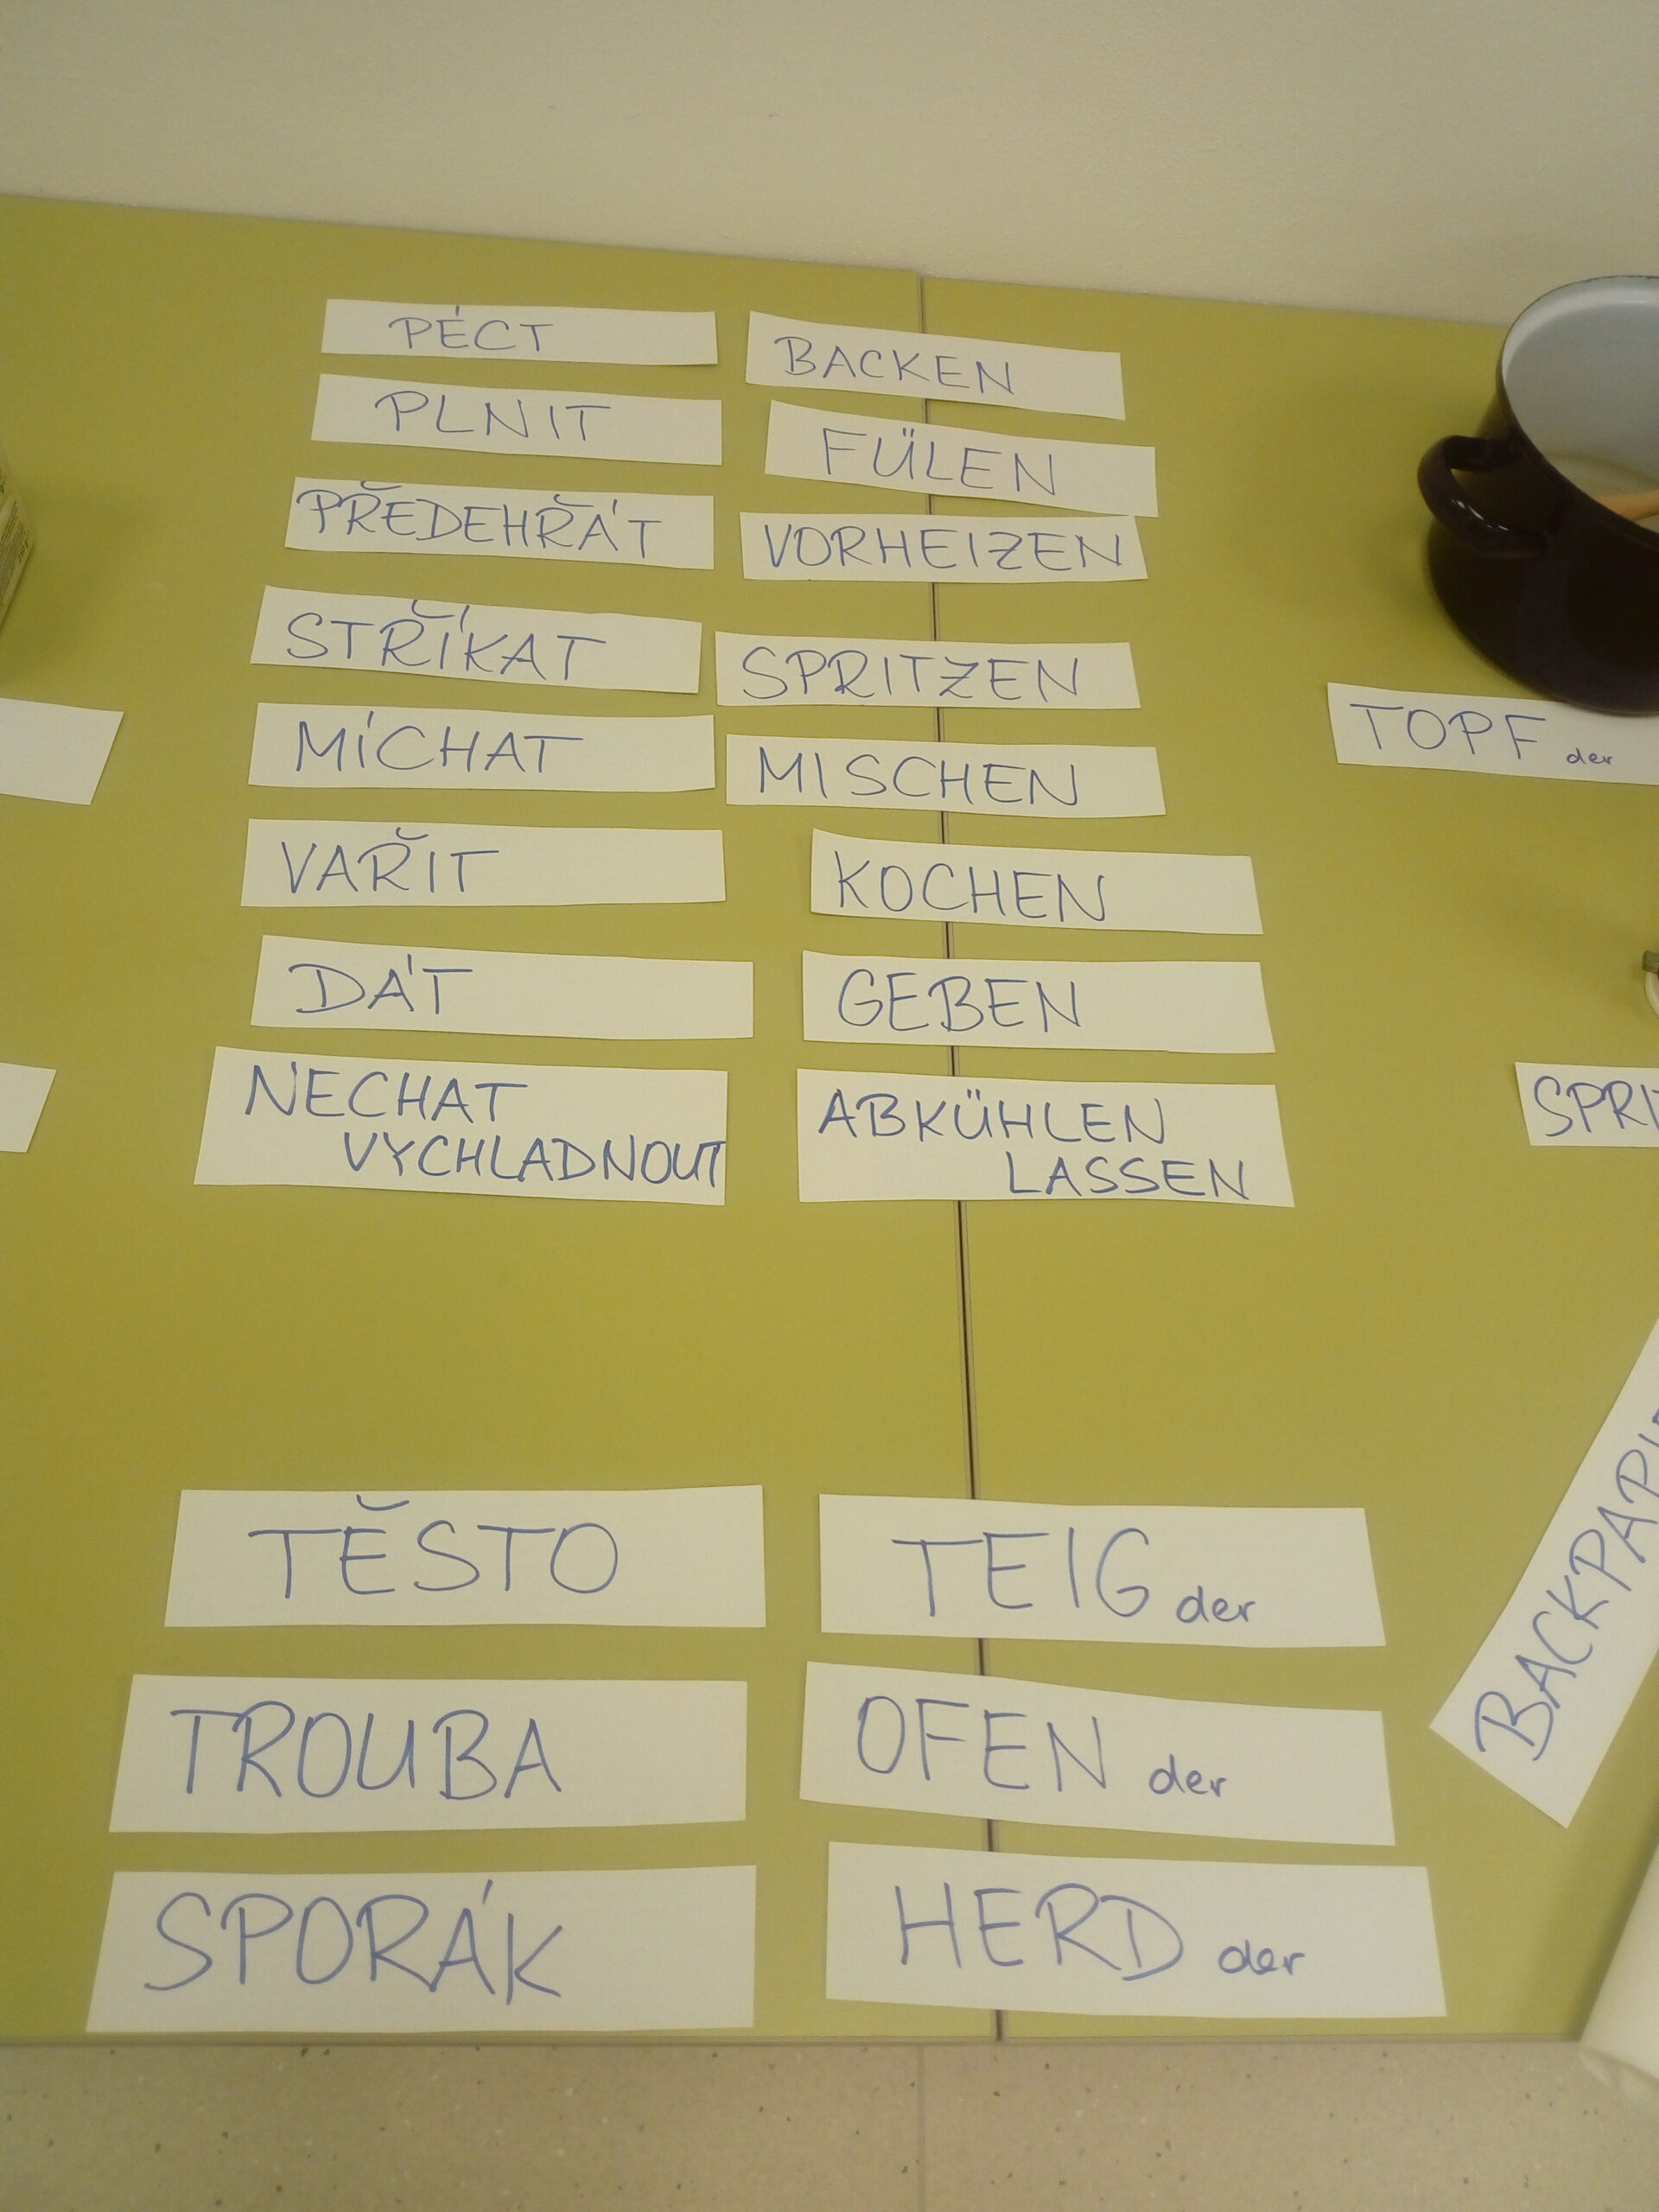 PÉCT
BACKEN
PLNIT
FÜLEN
PŘEDEHŘÁT
VORHEIZEN
STŘÍKAT
SPRITZEN
MÍCHAT
MISCHEN
TOPF der
VAŘIT
KOCHEN
DÁT
GEBEN
NECHAT
VYCHLADNOUT
ABKÜHLEN
LASSEN
TĚSTO
TEIG der
TROUBA
OFEN der
SPORÁK
HERD der